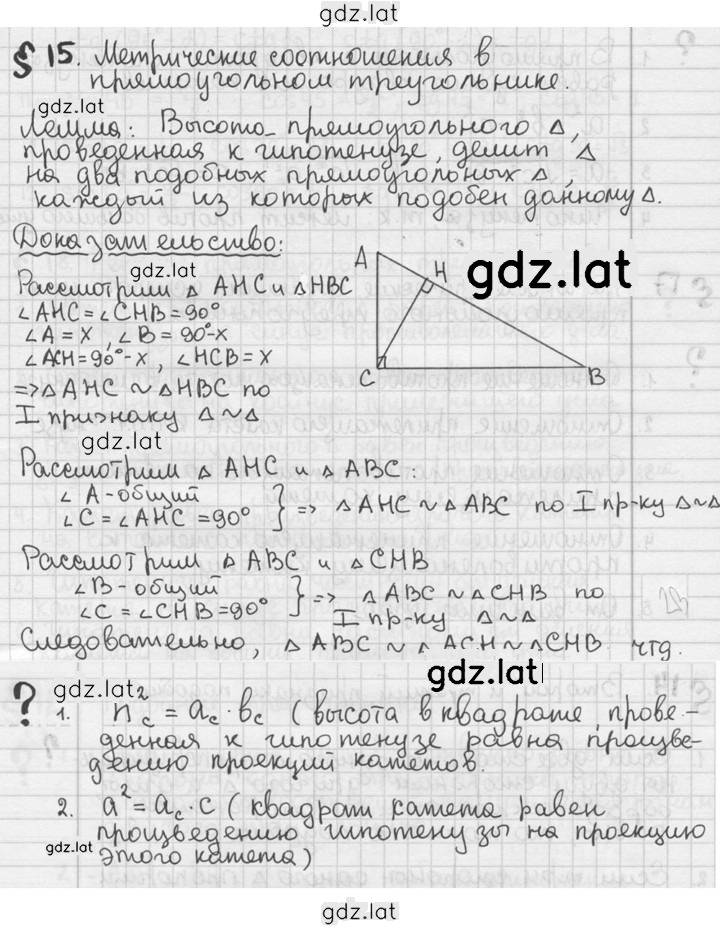 gdz.lat
§ 15. Метрические соотношения в
прямоугольном треугольнике.
gdz.lat
Лемма: Высота прямоугольного Δ,
проведенная к гипотенузе, делит Δ
на два подобных прямоугольных Δ,
каждый из которых подобен данному Δ.
Доказательство:
gdz.lat
Рассмотрим Δ AHC и Δ HBC
∠AHC = ∠CHB = 90°
∠A = x, ∠B = 90°-x
∠ACH = 90°-x, ∠HCB = x
=> Δ AHC ~ Δ HBC по
I признаку Δ ~ Δ
A
H
gdz.lat
C
B
gdz.lat
Рассмотрим Δ AHC и Δ ABC:
∠A - общий
∠C = ∠AHC = 90° } => Δ AHC ~ Δ ABC по I пр-ку Δ ~ Δ
Рассмотрим Δ ABC и Δ CHB
∠B - общий
∠C = ∠CHB = 90° } => Δ ABC ~ Δ CHB по
I пр-ку Δ ~ Δ
Следовательно, Δ ABC ~ Δ ACH ~ Δ CHB. чтд.
gdz.lat
gdz.lat
? 1. h²c = ac · bc (высота в квадрате, прове-
денная к гипотенузе равна произве-
дению проекций катетов.
2. a² = ac · c (квадрат катета равен
произведению гипотенузы на проекцию
gdz.lat
этого катета)
gdz.lat